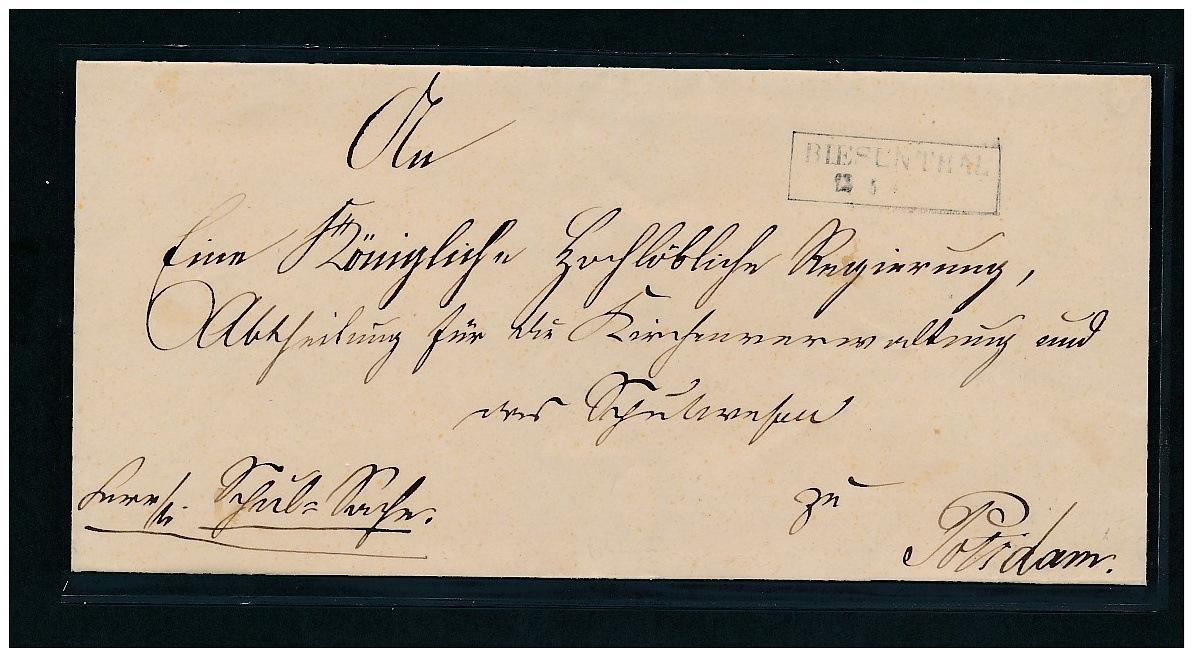 An
BIESENTHAL
13 5
Eine Königliche Hochlöbliche Regierung,
Abtheilung für die Kirchenverwaltung und
das Schulwesen
Schul-Sache.
zu
Potsdam.